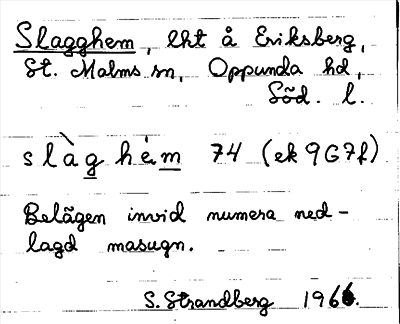 Slagghem, lht å Eriksberg,
St. Malms sn, Oppunda hd,
Söd. l.
slàg hém 74 (ek 9G7f)
Belägen invid numera ned-
lagd masugn.
S. Strandberg 1966.